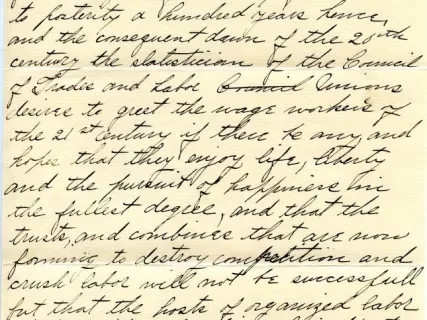 to posterity a hundred years hence,
and the consequent dawn of the 20th
century the statistician of the Council
of Trades and Labor Council Unions
desires to greet the wage workers of
the 21st century if there be any, and
hopes that they enjoy life, liberty
and the pursuit of happiness in
the fullest degree, and that the
trusts, and combines that are now
forming to destroy competition and
crush labor will not be successfull
but that the hosts of organized labor